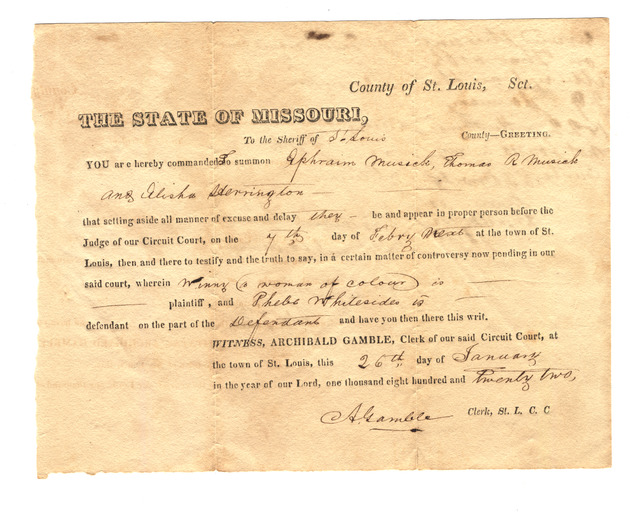 County of St. Louis, Sct.
THE STATE OF MISSOURI,
To the Sheriff of St Louis County—GREETING.
YOU are hereby commanded To summon Ephraim Musick, Thomas R Musick
and Elisha Herrington —
that setting aside all manner of excuse and delay they — be and appear in proper person before the
Judge of our Circuit Court, on the 7th day of Febry Next at the town of St.
Louis, then and there to testify and the truth to say, in a certain matter of controversy now pending in our
said court, wherein Winny (a woman of colour) is —
— plaintiff, and Phebe Whitesides is
defendant on the part of the Defendant and have you then there this writ.
WITNESS, ARCHIBALD GAMBLE, Clerk of our said Circuit Court, at
the town of St. Louis, this 26th day of January
in the year of our Lord, one thousand eight hundred and twenty two,
A Gamble Clerk, St. L. C. C